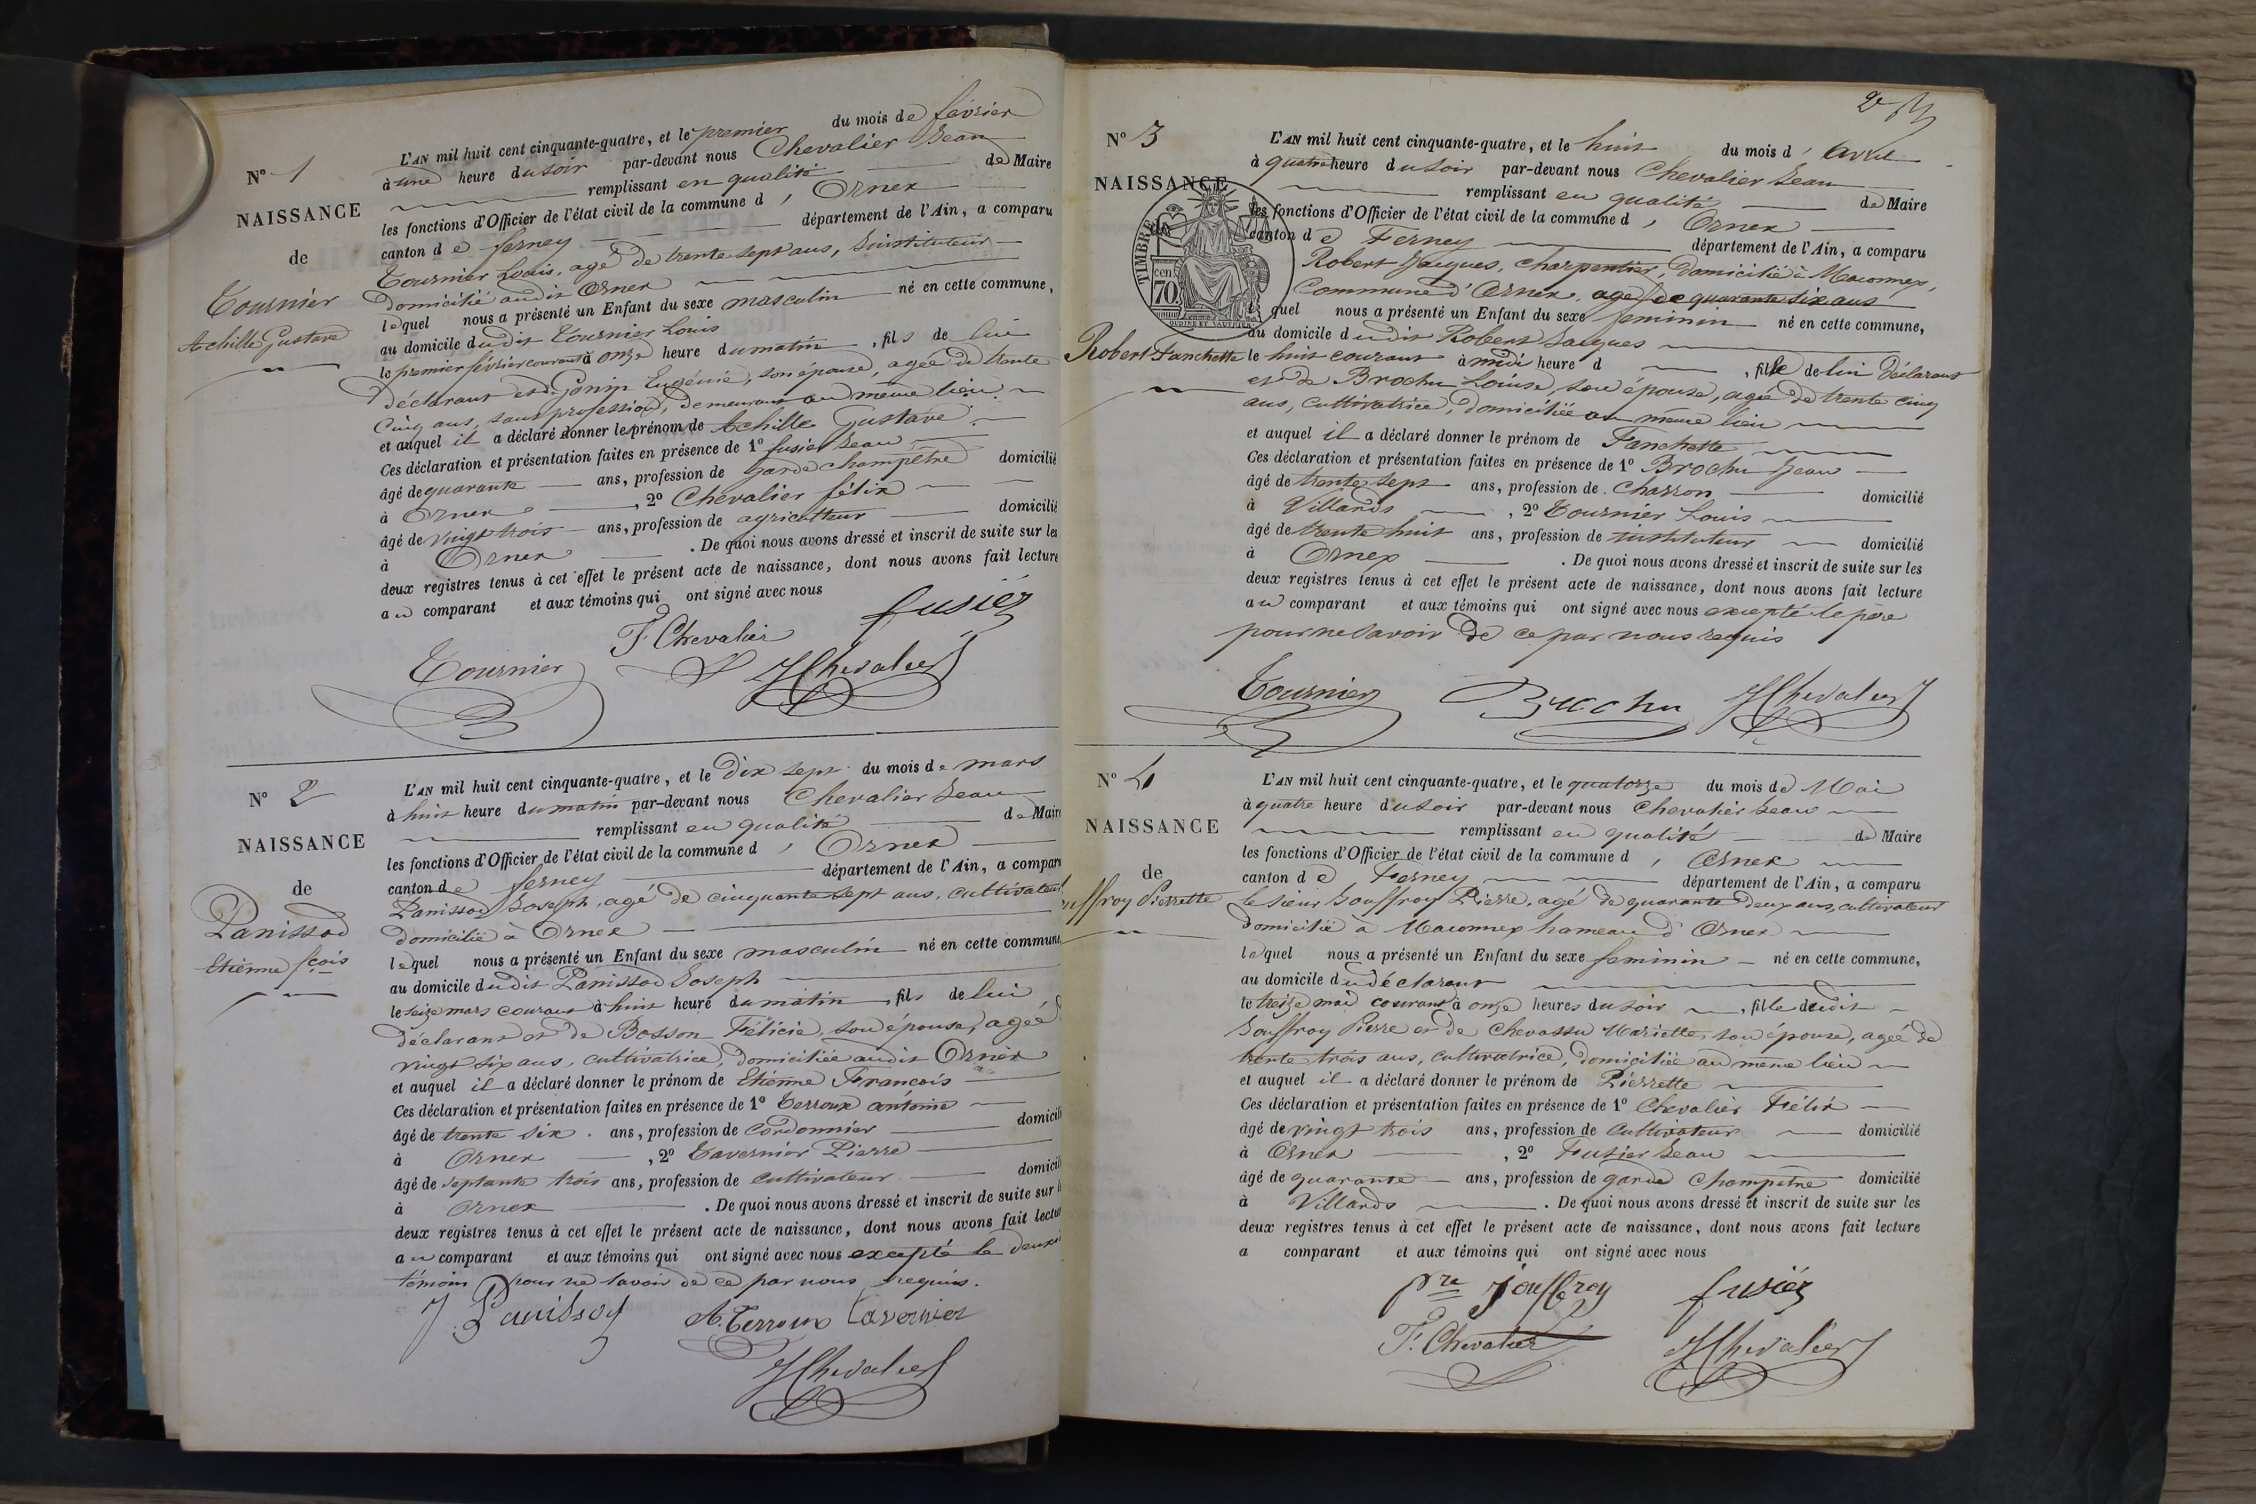 N° 1
NAISSANCE
de
Tournier
Achille Gustave
L'AN mil huit cent cinquante-quatre, et le premier du mois de février
à une heure du soir par-devant nous Chevalier Jean
remplissant en qualité de Maire
les fonctions d'Officier de l'état civil de la commune d' Ornex
canton de ferney département de l'Ain, a comparu
Tournier Louis, agé de trente sept ans, Instituteur
domicilié audit Ornex
lequel nous a présenté un Enfant du sexe masculin né en cette commune,
au domicile dudit Tournier Louis
le premier février courant à onze heure du matin, fils de lui
déclarant et de Eugénie, son épouse, agée de trente
cinq ans, sans profession, demeurant au même lieu
et auquel il a déclaré donner les prénom de Achille Gustave
Ces déclaration et présentation faites en présence de 1° fusier Jean
âgé de quarante ans, profession de garde champêtre domicilié
à Ornex, 2° Chevalier félix
âgé de vingt trois ans, profession de agriculteur domicilié
à Ornex. De quoi nous avons dressé et inscrit de suite sur les
deux registres tenus à cet effet le présent acte de naissance, dont nous avons fait lecture
au comparant et aux témoins qui ont signé avec nous
fusier
F. Chevalier
Tournier JChevalier
N° 2
NAISSANCE
de
Panissod
Etienne fçois
L'AN mil huit cent cinquante-quatre, et le dix sept du mois de mars
à huit heure du matin par-devant nous Chevalier Jean
remplissant en qualité de Maire
les fonctions d'Officier de l'état civil de la commune d' Ornex
canton de ferney département de l'Ain, a comparu
Panissod Joseph, agé de cinquante sept ans, cultivateur
domicilié à Ornex
lequel nous a présenté un Enfant du sexe masculin né en cette commune
au domicile dudit Panissod Joseph
le seize mars courant à huit heure du matin, fils de lui
déclarant et de Bosson Félicie, son épouse, agée
vingt six ans, cultivatrice, domiciliée audit Ornex
et auquel il a déclaré donner le prénom de Etienne François
Ces déclaration et présentation faites en présence de 1° Terroux antoine
âgé de trente six ans, profession de Cordonnier domicilié
à Ornex, 2° Tavernier Pierre
âgé de septante trois ans, profession de cultivateur domicilié
à Ornex. De quoi nous avons dressé et inscrit de suite sur
deux registres tenus à cet effet le présent acte de naissance, dont nous avons fait lecture
au comparant et aux témoins qui ont signé avec nous excepté le
témoin pour ne savoir de ce par nous requis.
J Panissod A. Terroux Tavernier
JChevalier
2e
N° 3
NAISSANCE
TIMBRE
cent
70
Robert Fanchette
L'AN mil huit cent cinquante-quatre, et le huit du mois d' Avril
à quatre heure du soir par-devant nous Chevalier Jean
remplissant en qualité de Maire
les fonctions d'Officier de l'état civil de la commune d' Ornex
canton de Ferney département de l'Ain, a comparu
Robert Jacques, charpentier, domicilié à Maconnex,
Commune d'Ornex, agé de quarante six ans
quel nous a présenté un Enfant du sexe feminin né en cette commune,
au domicile dudit Robert Jacques
le huit courant à midi heure d, fille de lui déclarant
et de Brochu Louise, son épouse, agée de trente cinq
ans, cultivatrice, domiciliée au même lieu
et auquel il a déclaré donner le prénom de Fanchette
Ces déclaration et présentation faites en présence de 1° Brochu Jean
âgé de trente sept ans, profession de Charron domicilié
à Villards, 2° Tournier Louis
âgé de trente huit ans, profession de instituteur domicilié
à Ornex. De quoi nous avons dressé et inscrit de suite sur les
deux registres tenus à cet effet le présent acte de naissance, dont nous avons fait lecture
au comparant et aux témoins qui ont signé avec nous excepté le père
pour ne savoir de ce par nous requis
Tournier Brochu JChevalier
N° 4
NAISSANCE
de
uffroy Pierrette
L'AN mil huit cent cinquante-quatre, et le quatorze du mois de Mai
à quatre heure du soir par-devant nous Chevalier Jean
remplissant en qualité de Maire
les fonctions d'Officier de l'état civil de la commune d' Ornex
canton de Ferney département de l'Ain, a comparu
le sieur Jouffroy Pierre, agé de quarante deux ans, cultivateur
domicilié à Maconnex hameau d'Ornex
lequel nous a présenté un Enfant du sexe feminin né en cette commune,
au domicile du déclarant
le treize mai courant à onze heures du soir, fille dudit
Jouffroy Pierre et de Chevassu Mariette, son épouse, agée de
trente trois ans, cultivatrice, domiciliée au même lieu
et auquel il a déclaré donner le prénom de Pierrette
Ces déclaration et présentation faites en présence de 1° Chevalier Félix
âgé de vingt trois ans, profession de cultivateur domicilié
à Ornex, 2° Fusier Jean
âgé de quarante ans, profession de garde Champêtre domicilié
à Villards. De quoi nous avons dressé et inscrit de suite sur les
deux registres tenus à cet effet le présent acte de naissance, dont nous avons fait lecture
a comparant et aux témoins qui ont signé avec nous
pre Jouffroy fusier
F. Chevalier JChevalier